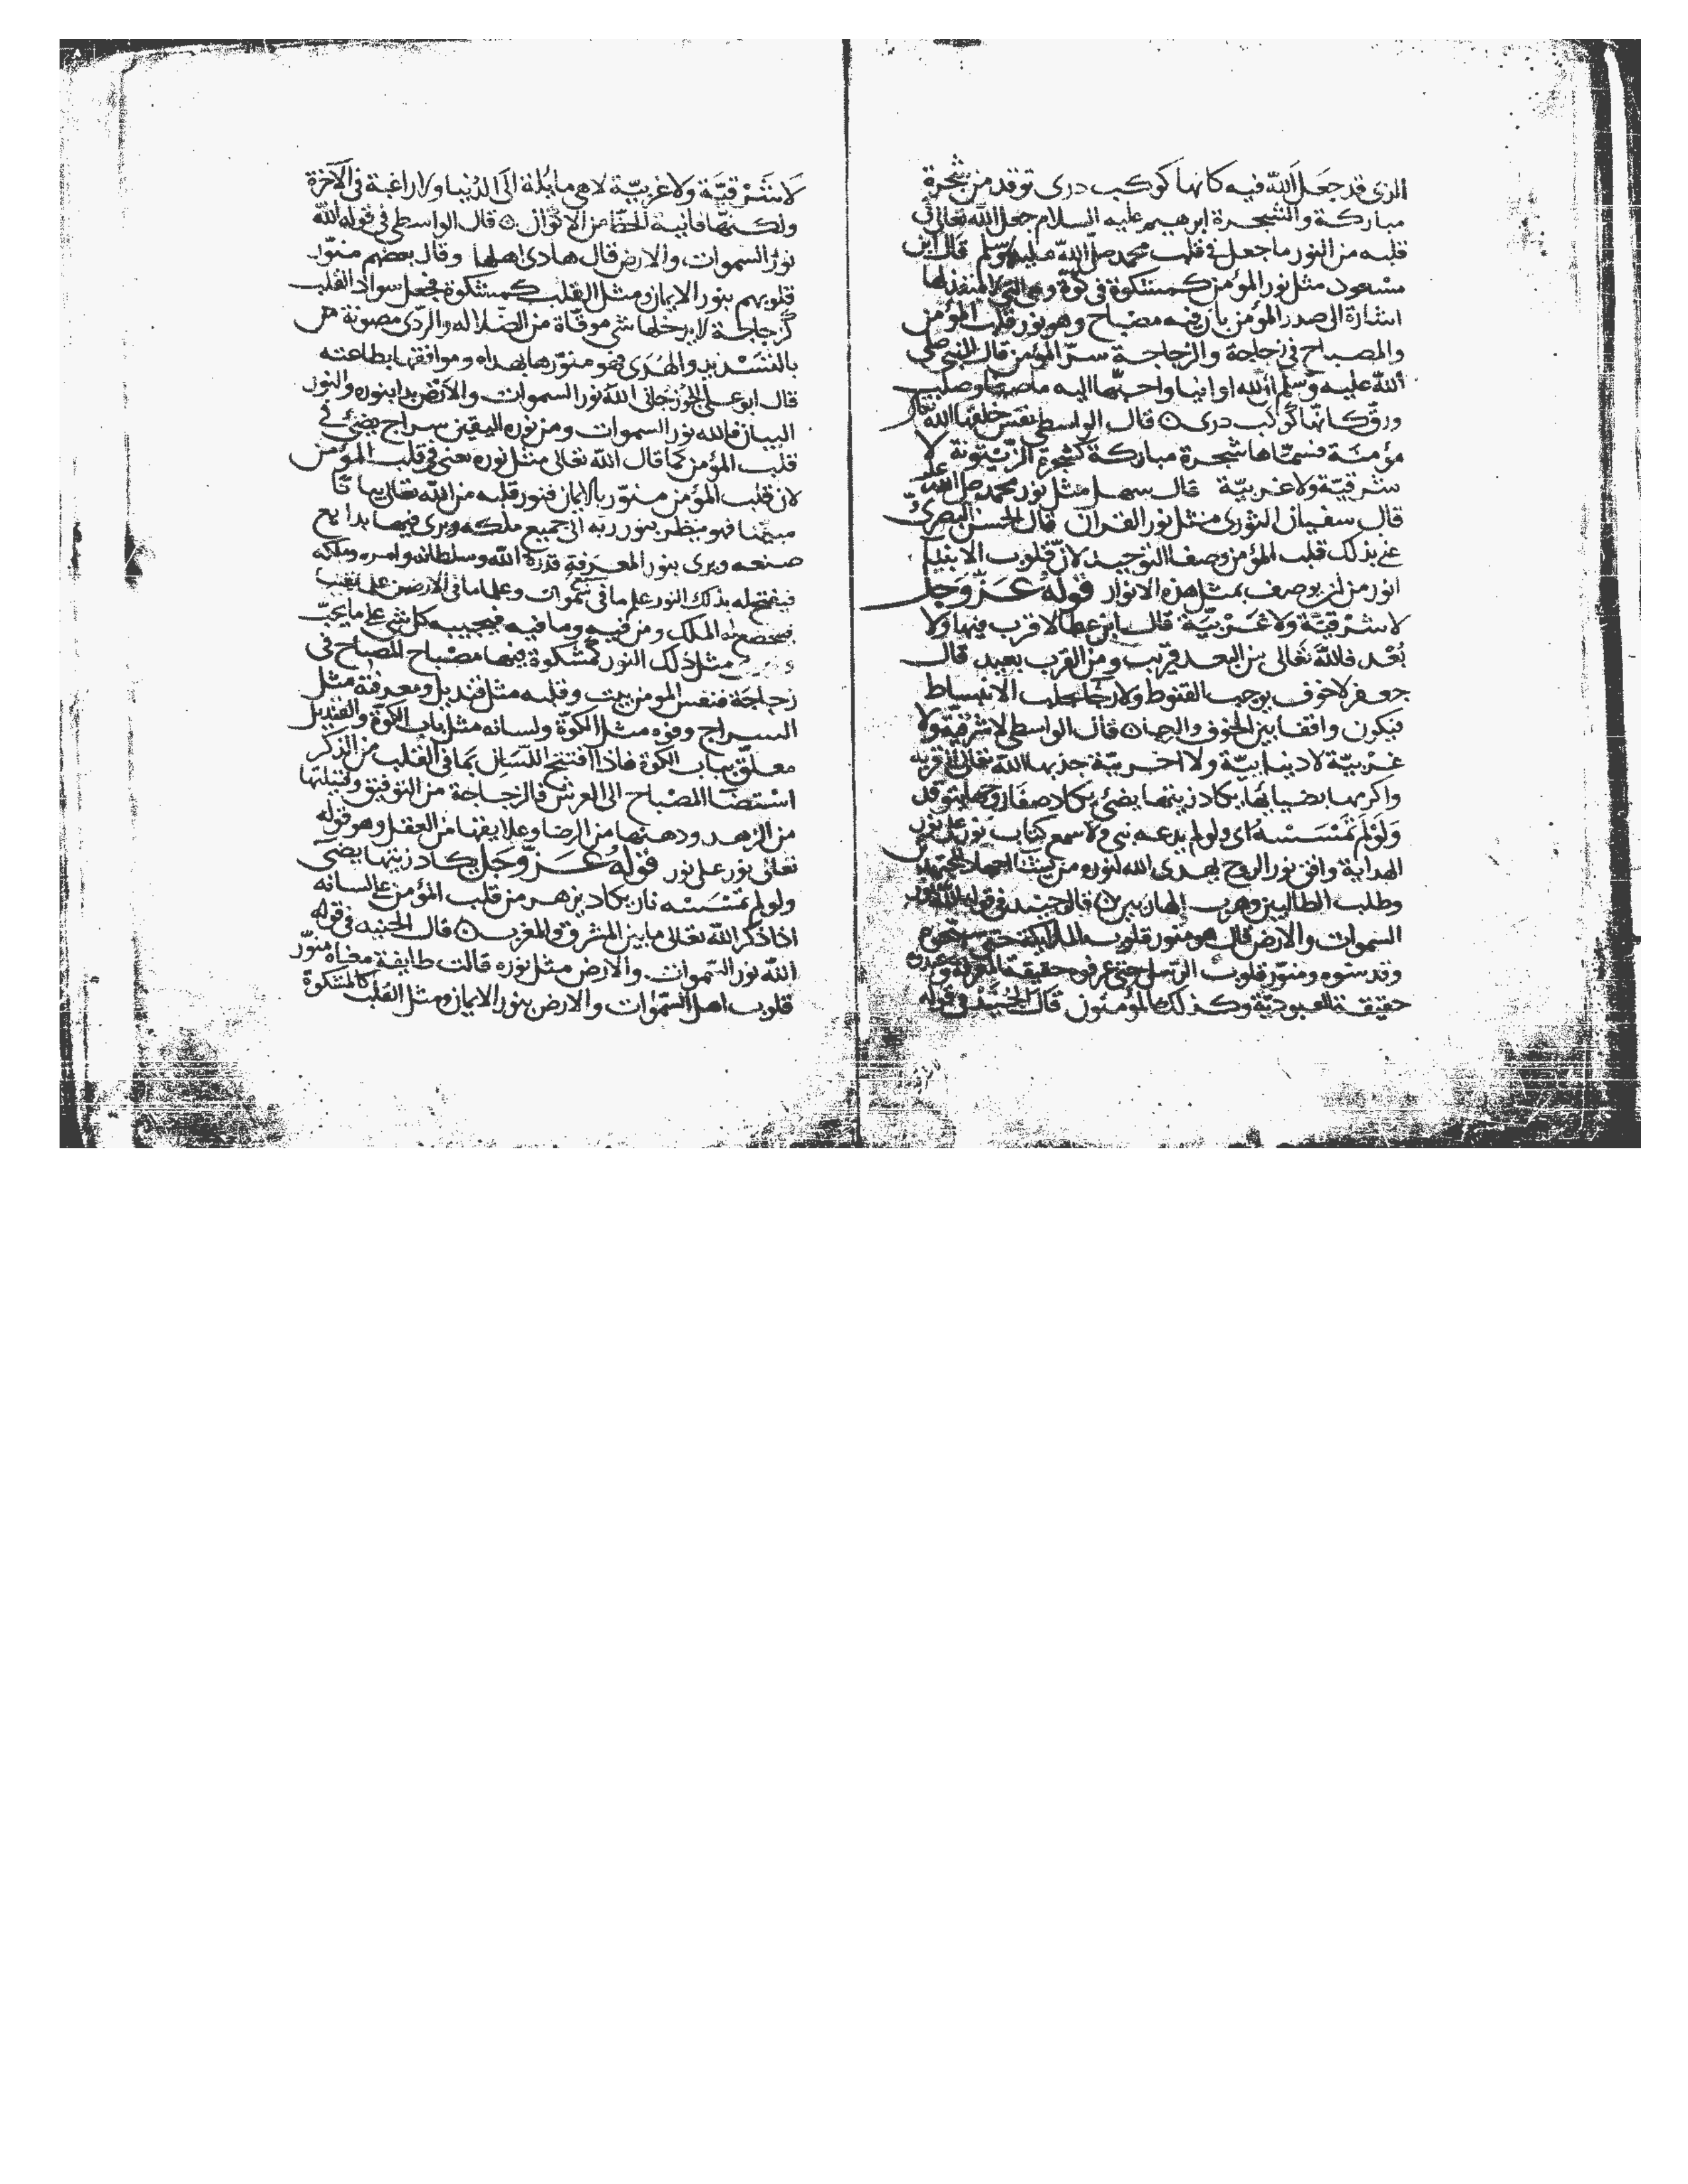 الذى قد جعل الله فيه كانها كوكب درى توقد من شجرة
مباركة والشجرة ابرهيم عليه السلام جعل الله تعالى فى
قلبه من النور ما جعل فى قلب محمد صلى الله عليه وسلم قال ابن
مسعود مثل نور المؤمن كمشكوة فى كوة وهى التى لا منفذ لها
اشارة الى صدر المؤمن بان فيه مصباح وهو نور قلب المؤمن
والمصباح فى زجاجة والزجاجة سر المؤمن قال النبى صلى
الله عليه وسلم ان لله اوانيا واحبها اليه ما صفا وصلب
ورق كانها كوكب درى قال الواسطى نفس خلقها الله
مؤمنة فسماها شجرة مباركة كشجرة الزيتونة لا
شرقية ولا غربية قال سهل مثل نور محمد صلى الله عليه
قال سفين الثورى مثل نور القرآن قال الحسن البصرى
عنى بذلك قلب المؤمن وصف التوحيد لان قلوب الانبيا
انور من ان يوصف بمثل هذه الانوار قوله عز وجل
لا شرقية ولا غربية قال ابن عطا لا قرب فيها ولا
بعد فالله تعالى من البعد قريب ومن القرب بعيد قال
جعفر لا خوف يوجب القنوط ولا رجا يجلب الانبساط
فيكون واقفا بين الخوف والرجا قال الواسطى لا شرقية ولا
غربية لا دنياية ولا اخرية جذبها الله تعالى الى قربه
واكرمها بضيايها يكاد زيتها يضئ يكاد صفا روحها يتوقد
ولو لم تمسسه اى ولو لم يدعه نبى ولا سمع كتاب نور على نور
الهداية وافق نور الروح يهدى الله لنوره من يشا
وطلب الطالبين وهرب الهاربين قال جنيد فى قوله الله نور
السموات والارض قال هو منور قلوب الملايكة حتى سبحوه
وقدسوه ومنور قلوب الرسل حتى عرفوه حقيقة المعرفة وعبدوه
حقيقة العبودية وكذلك المؤمنون قال الجنيد فى قوله
لا شرقية ولا غربية لا هى مايلة الى الدنيا ولا راغبة فى الآخرة
ولكنها فانية الحظ من الاكوان قال الواسطى فى قوله الله
نور السموات والارض قال هادى اهلها وقال بعضهم منور
قلوبهم بنور الايمان ومثل القلب كمشكوة فجعل سواد القلب
كزجاجة لا يدخلها شى موقاة من الضلالة والردى مصونة
بالتسديد والهدى فهو منورها بهداه وموافقها بطاعته
قال ابو على الجوزجانى الله نور السموات والارض بدا بنوره والنور
البيان فالله نور السموات ومن نوره اليقين سراج يضئ فى
قلب المؤمن كما قال الله تعالى مثل نوره يعنى فى قلب المؤمن
لان قلب المؤمن منور بالايمان فنور قلبه من الله تعالى
فهو ينظر بنور ربه الى جميع ملكه ويرى فيها بدايع
صنعه ويرى بنور المعرفة قدرة الله وسلطانه وامره وملكه
فيفتح له بذلك النور علم ما فى السموات وعلم ما فى الارضين
فيخضع له الملك ومن فيه وما فيه فيجيبه كل شى على ما يحب
مثل ذلك النور كمشكوة فيها مصباح المصباح فى
زجاجة فنفس المومن بيت وقلبه مثل قنديل ومعرفة مثل
السراج وفوه مثل الكوة ولسانه مثل باب الكوة والقنديل
معلق بباب الكوة فاذا افتتح اللسان بما فى القلب من الذكر
استضا المصباح الى العرش فالزجاجة من التوفيق وفتيلتها
من الزهد ودهنها من الرضا وعلايقها من العقل وهو قوله
تعالى نور على نور قوله عز وجل يكاد زيتها يضى
ولو لم تمسسه نار يكاد يزهر من قلب المؤمن على لسانه
اذا ذكر الله تعالى ما بين المشرق والمغرب قال الجنيد فى قوله
الله نور السموات والارض مثل نوره قالت طايفة معناه منور
قلوب اهل السموات والارض بنور الايمان ومثل القلب كالمشكوة